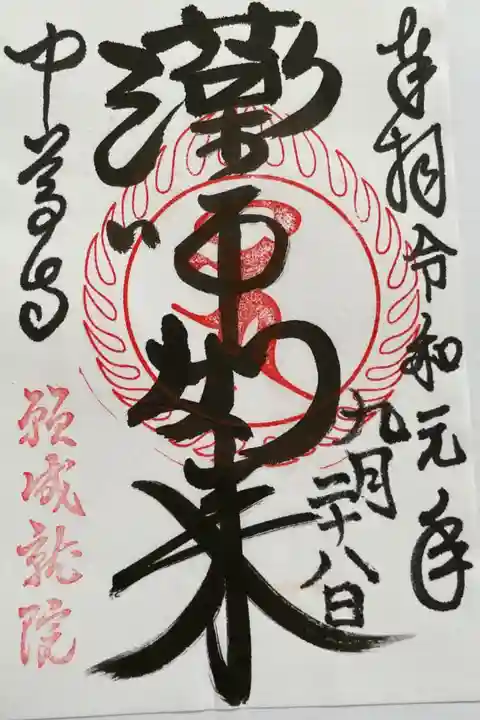 奉拝令和元年
九月二十八日
薬師如来
中尊寺
願成就院